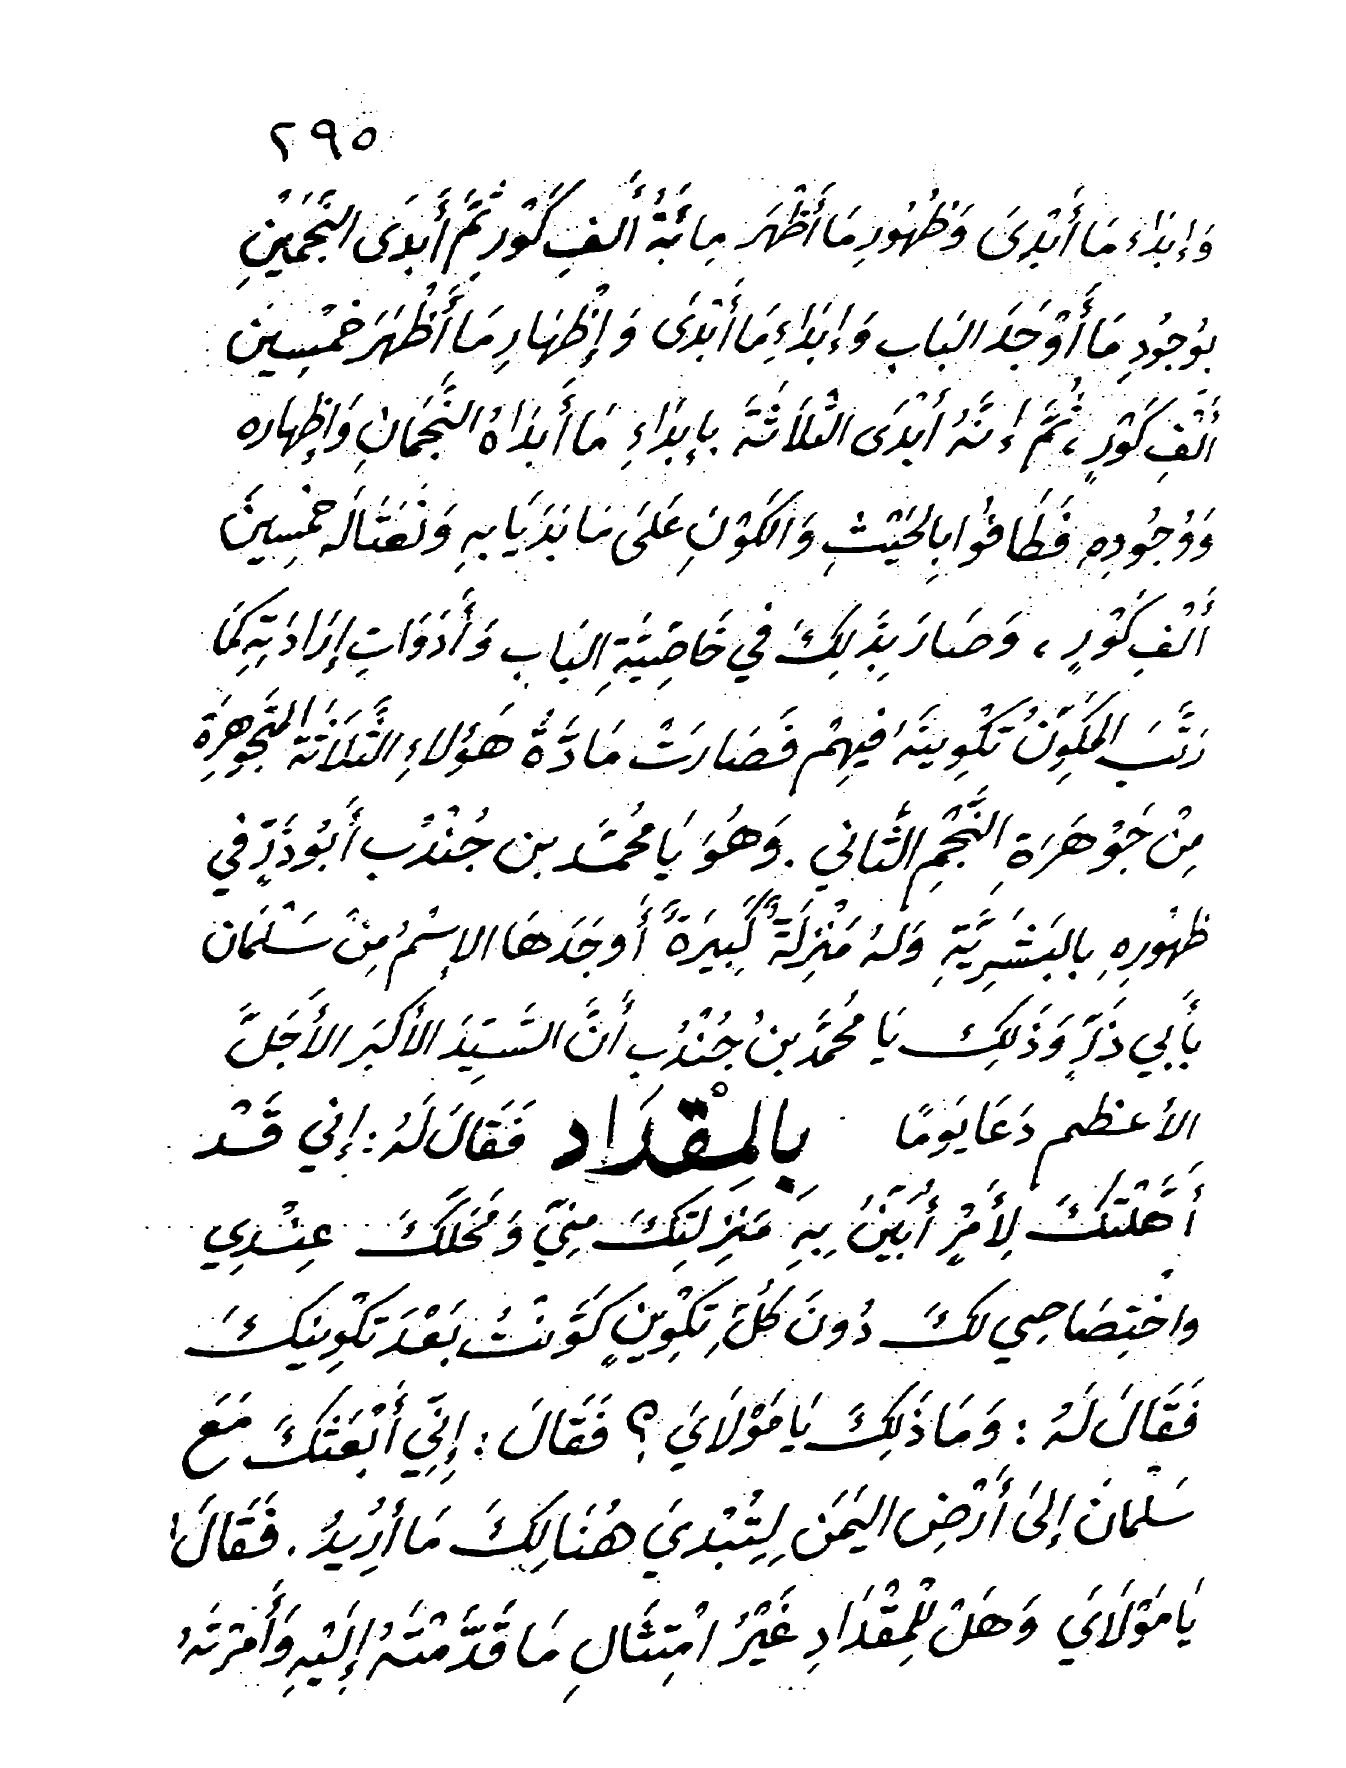 ٢٩٥
وَإِبْدَاءِ مَا أَبْدَىَ وَظُهُورِ مَا أَظْهَرَ مِائَةُ أَلفِ كَوْرٍ ثُمَّ أَبدَى النَّجْمَيْنِ
بوُجُودِ مَا أَوْجَدَ البَاب وَإبدَاءِ مَا أَبْدَى وَإِظْهَارِ مَا أَظْهَرَ خَمْسِينَ
أَلْفِ كَوْرٍ، ثُمَّ إِنَّهُ أَبْدَى الثَّلاَثَةَ بإِبدَاءِ مَا أَبدَاهُ النَّجْمَانِ وَاظِهاره
وَوُجُودِهِ فَطَافُوا بِالحَيْثِ وَالكَوْنِ عَلَى مَا بَدَيَا بهِ وَنَعَتَا لَه خمسِينَ
أَلْفِ كَوْرٍ، وَصَارَ بِذَلِكَ في خَاصِّيَّةِ البَابِ وَأَدَوَاتِ إِرَادَتِهِ كَمَا
رَتَّبَ المكَوِّنُ تَكْوِينَهُ فِيهِمْ فَصَارَتْ مَادَّةُ هَؤلاءِ الثَّلاَثَة المتَجَوهِرَة
مِنْ جَوْهَرَةِ النَّجْمِ الثَّاني. وَهُوَ يَا محُمَّد بن جُنْدُب أَبُو ذَرٍّ في
ظهُورِهِ بالبَشَرِيَّةِ وَلهُ مَنْزِلَةً كَبِيرَةً أَوجَدَهَا الإسْمُ مِنْ سَلْمَان
بأَبي ذَرٍّ وَذَلِكَ يَا محُمَّدُ بنُ جُنْدُب أَنَّ السَّيِّدَ الأكبَر الأجَلَّ
الأعظم دَعَا يَومًا بِالمِقْدَاد فَقَالَ لَهُ: إِني قَدْ
أَهَّلْتُكَ لِأَمْرٍ أُبَيِّنُ بِهِ مَنزِلَتِكَ مِنيّ وَمَحَلَّكَ عِنْدِي
وَاخْتِصَاصِي لكَ دُونَ كُلِّ تِكْوِينٍ كَوَّنْتُ بَعْدَ تكْوِينِكَ
فَقَالَ لَهُ: وَمَا ذَلِكَ يَا مَوْلاَيَ؟ فَقَالَ: إِنّي أَبْعَثكَ مَعَ
سَلْمَانَ إِلىَ أَرْضِ اليَمَن لِتُبْديَ هُنَالِكَ مَا أرِيدُ. فَقَالَ
يَا مَوْلاَيَ وَهَلْ لِلْمِقْدَادِ غَيْرُ امْتِثَالِ مَا قَدَّمْتَهُ إِلَيْهِ وَأَمَرْتَهُ